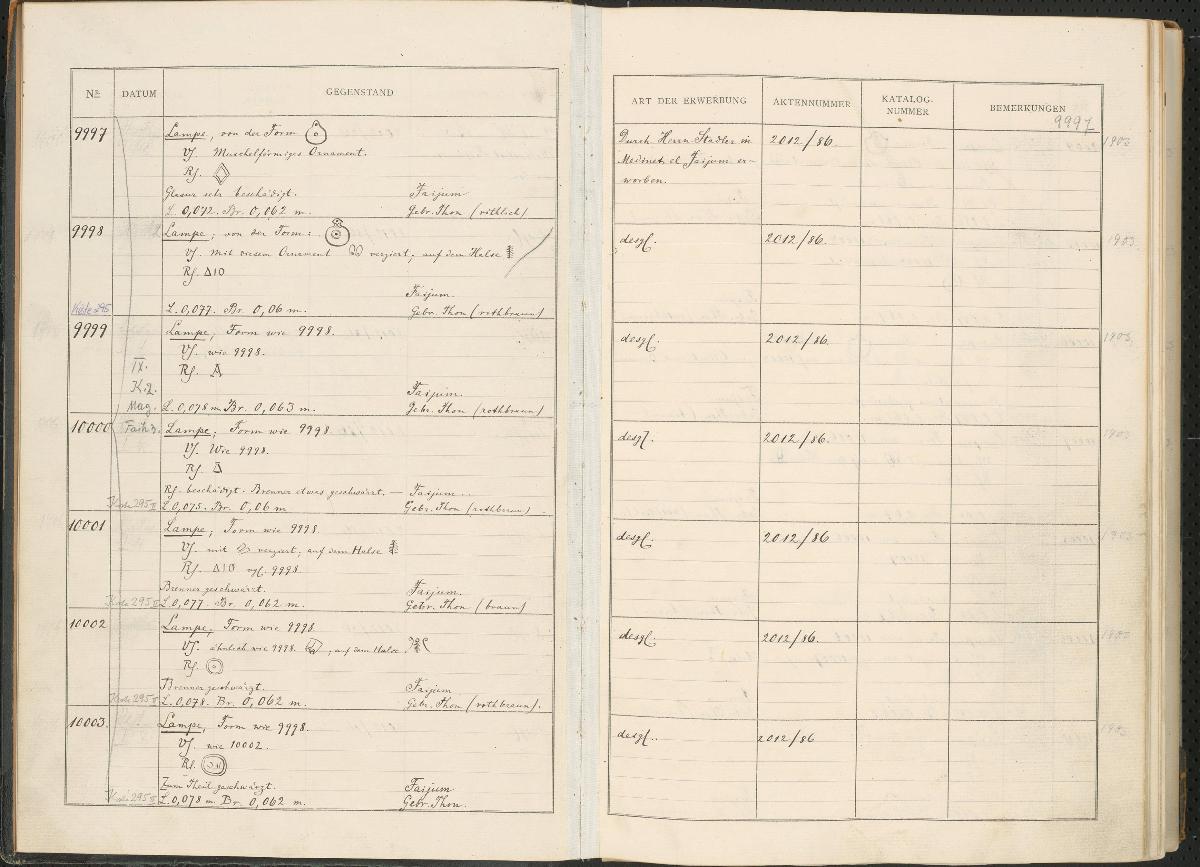 Nº DATUM GEGENSTAND
9997 Lampe, von der Form
Vs. Muschelförmiges Ornament.
Rs.
Glasur sehr beschädigt. Faijum
L. 0,072. Br. 0,062 m. Gebr. Thon (röthlich)
9998 Lampe; von der Form:
Vs. Mit diesem Ornament verziert; auf dem Halse
Rs. Δ10
Faijum.
Kiste 295 L. 0,077. Br. 0,06 m. Gebr. Thon (rothbraun)
9999 Lampe; Form wie 9998.
Vs. wie 9998.
IX. Rs. A
K.2. Faijum.
Mag. L. 0,078 m. Br. 0,063 m. Gebr. Thon (rothbraun)
10000 Lampe; Form wie 9998.
Vs. Wie 9998.
Rs.
Rs. beschädigt. Brenner etwas geschwärzt. — Faijum.
Kiste 295 L. 0,075. Br. 0,06 m Gebr. Thon (rothbraun)
10001 Lampe; Form wie 9998.
Vs. mit verziert; auf dem Halse
Rs. Δ10 vgl. 9998.
Brenner geschwärzt. Faijum.
Kiste 295 L. 0,077. Br. 0,062 m. Gebr. Thon (braun)
10002 Lampe, Form wie 9998.
Vs. ähnlich wie 9998. , auf dem Halse
Rs.
Brenner geschwärzt. Faijum
Kiste 295 L. 0,078. Br. 0,062 m. Gebr. Thon (rothbraun).
10003. Lampe, Form wie 9998.
Vs. wie 10002.
Rs.
Zum Theil geschwärzt. Faijum
Kiste 295 L. 0,078 m. Br. 0,062 m. Gebr. Thon.
ART DER ERWERBUNG AKTENNUMMER KATALOG-NUMMER BEMERKUNGEN
9997
Durch Herrn Stadler in 2012/86. 1903
Medinet el Faijum er-
worben.
desgl. 2012/86. 1903
desgl. 2012/86. 1903
desgl. 2012/86. 1903
desgl. 2012/86 1903
desgl. 2012/86. 1903
desgl. 2012/86 1903